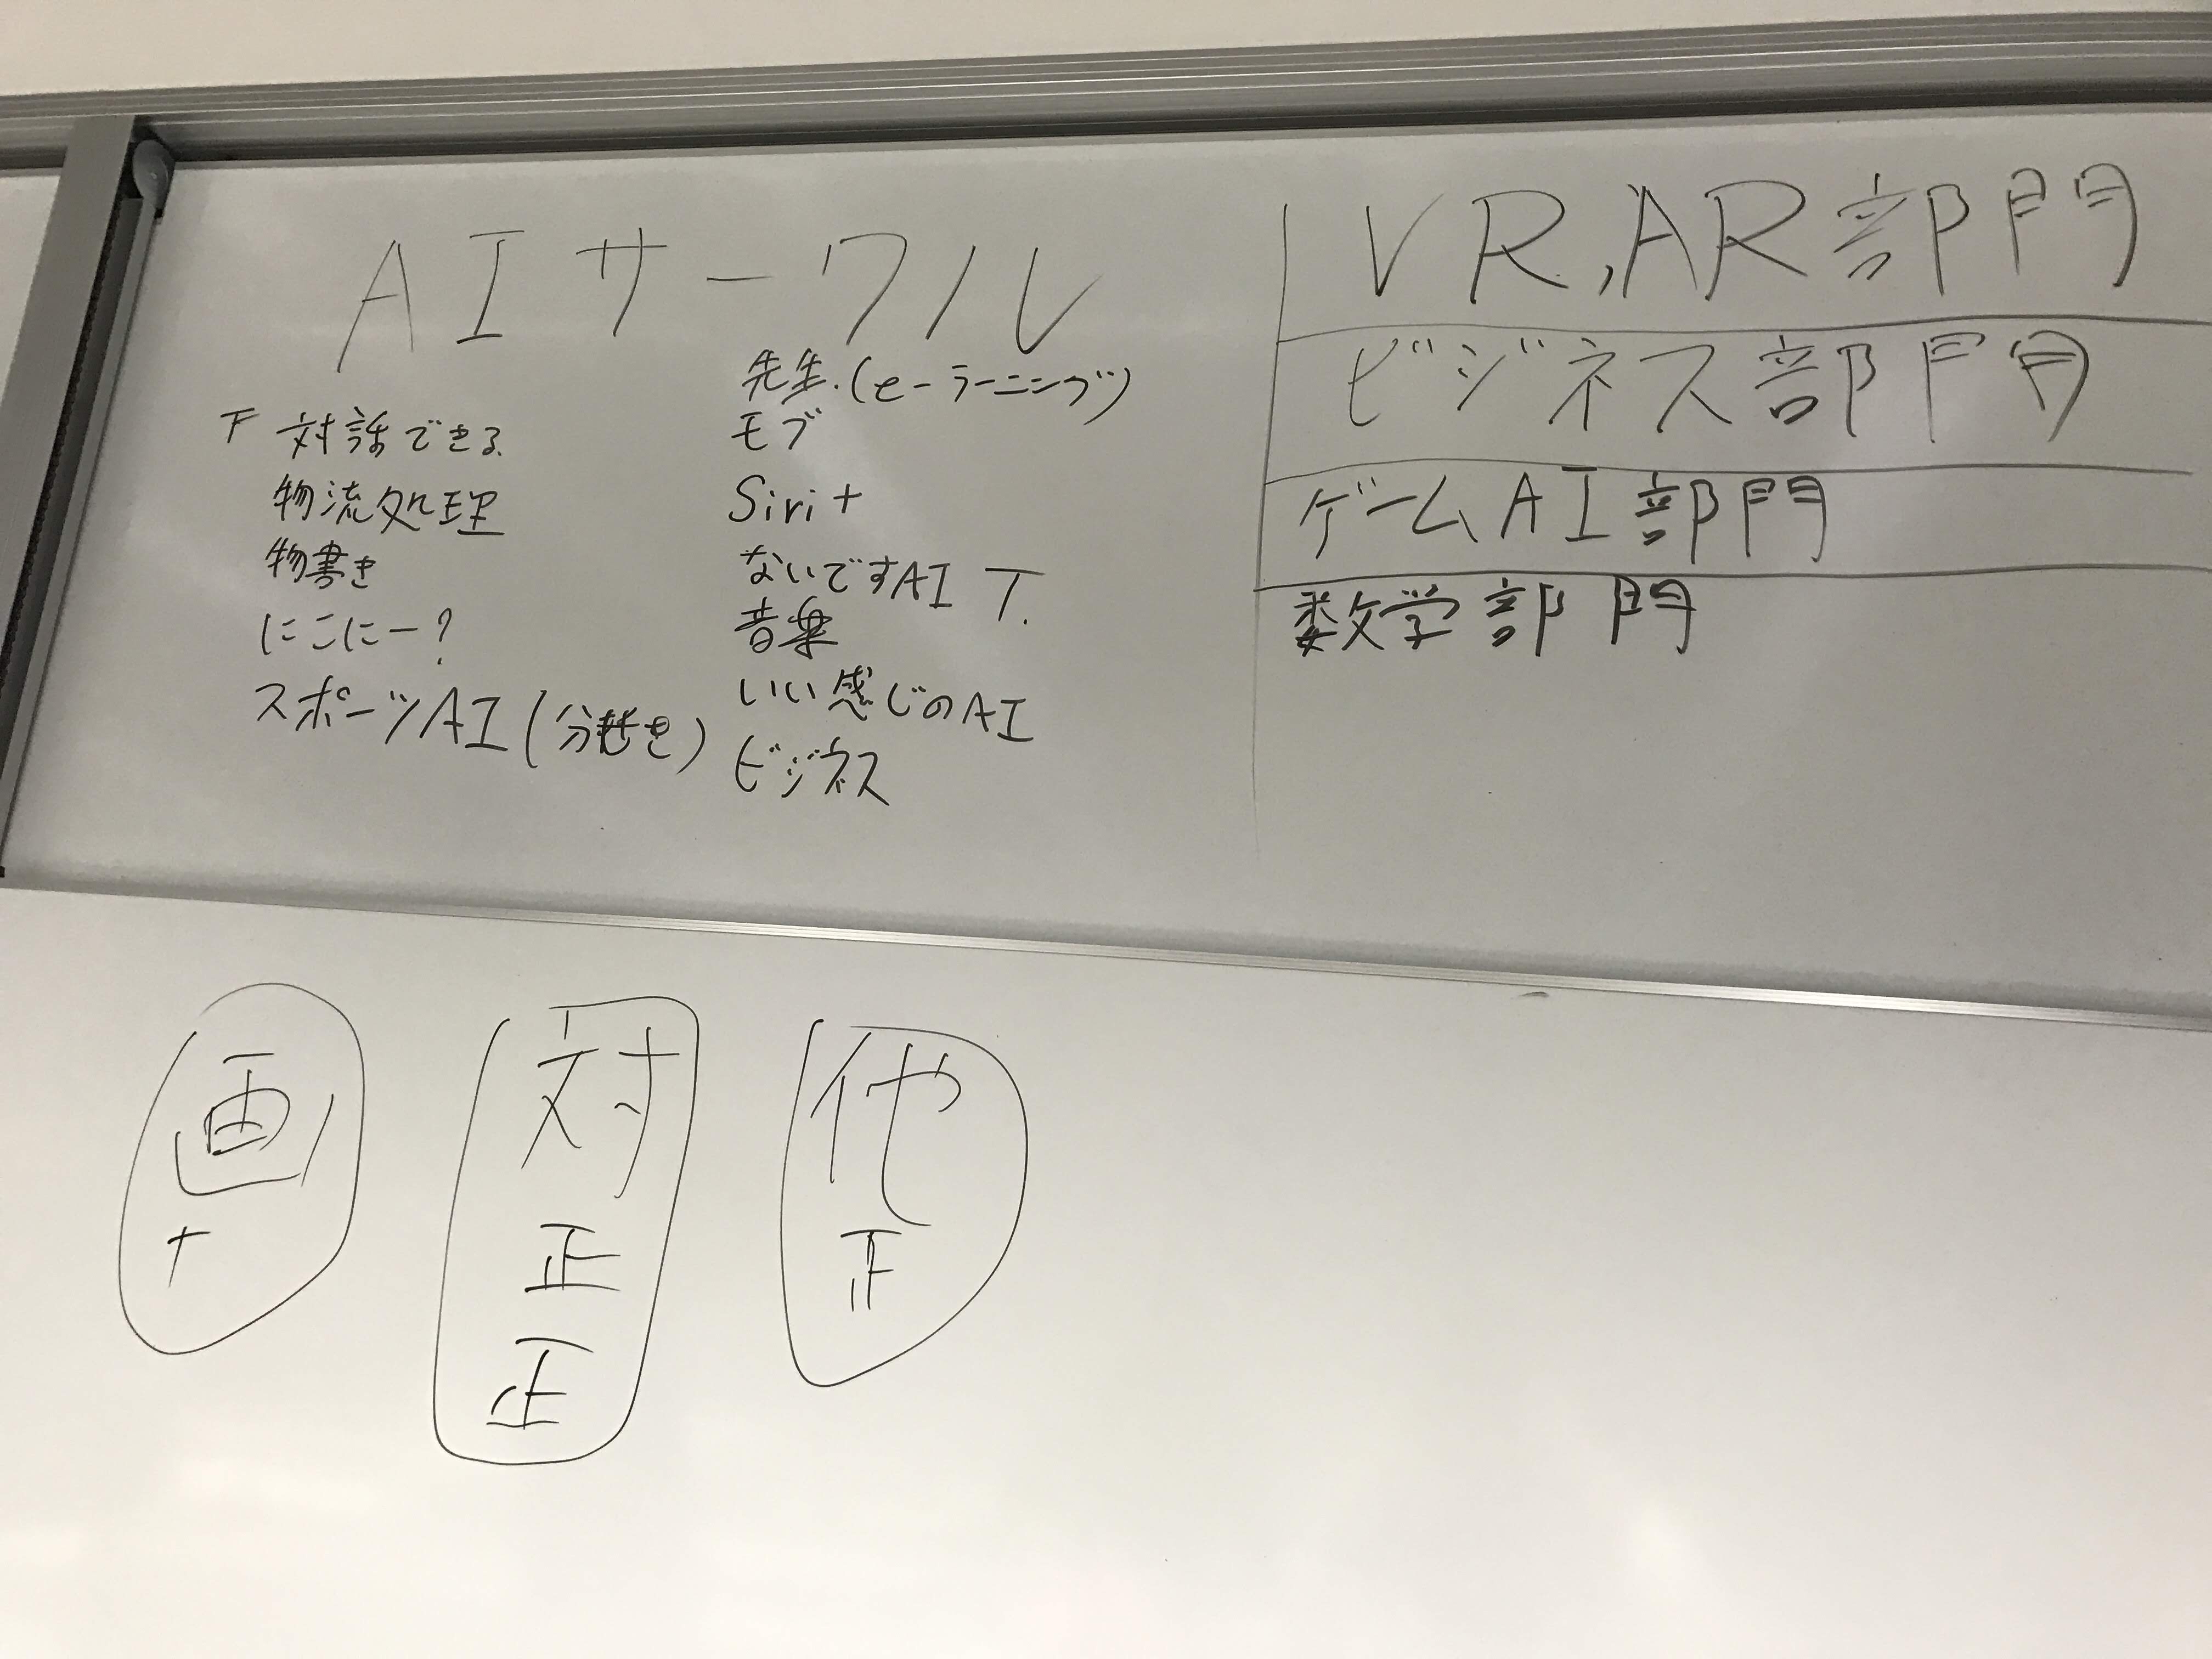 AIサークル
下 対話できる
物流処理
物書き
にこにー?
スポーツAI(分せき)
先生.(e-ラーニング)
モブ
Siri+
ないですAI T
音楽
いい感じのAI
ビジネス
VR,AR部門
ビジネス部門
ゲームAI部門
数学部門
画
対
正
正
他